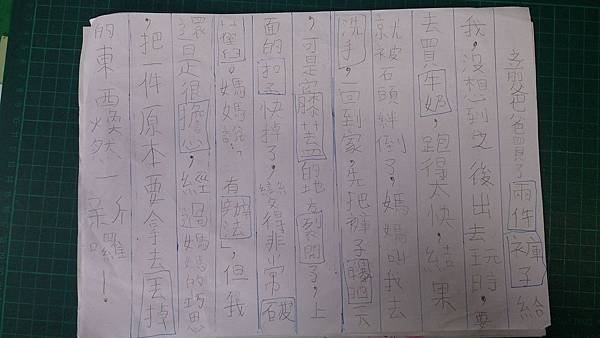 之前爸爸買了兩件褲子給
我,沒想到之後出去玩時,要
去買牛奶,跑得太快,結果
就被石頭絆倒了,媽媽叫我去
洗手,一回到家,先把褲子
,可是膝蓋的地方裂開了,上
面的扣子快掉了,變得非常破
舊。媽媽說:「有辦法」,但我
還是很擔心,經過媽媽的巧思
,把一件原本要拿去丟掉
的東西煥然一新囉!